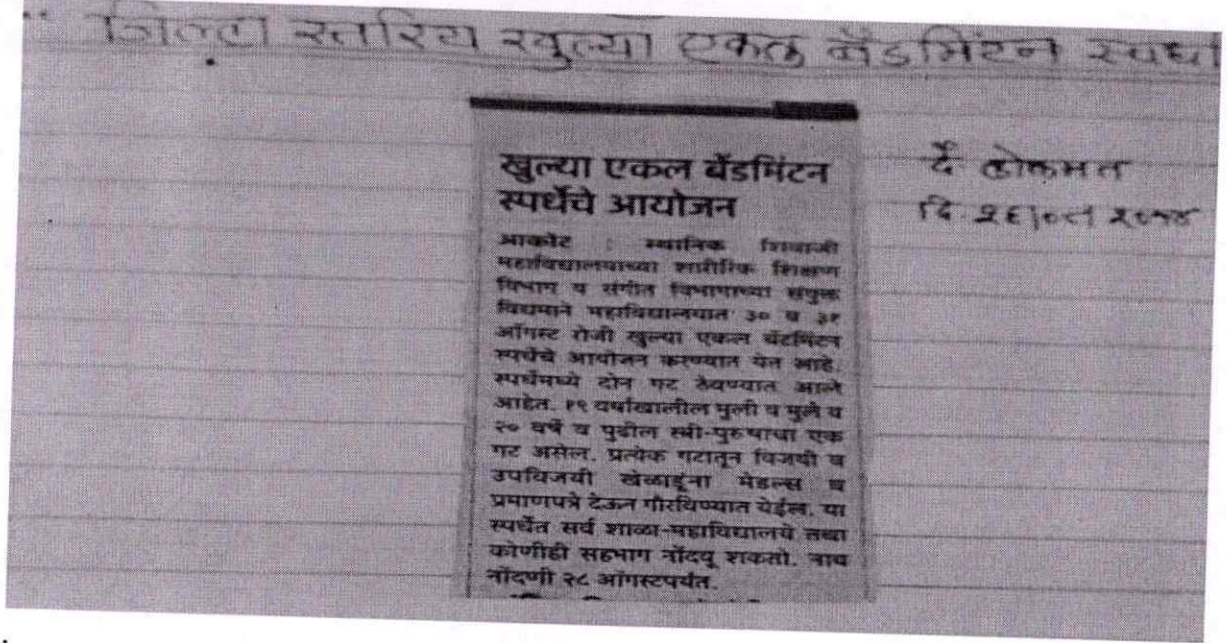 " जिल्हा स्तरिय खुल्या एकल बॅडमिंटन स्पर्धा
खुल्या एकल बॅडमिंटन
स्पर्धेचे आयोजन
दै लोकमत
दि. २६|०८| २०१४
आकोट : स्थानिक शिवाजी
महाविद्यालयाच्या शारीरिक शिक्षण
विभाग व संगीत विभागाच्या संयुक्त
विद्यमाने महाविद्यालयात ३० व ३१
ऑगस्ट रोजी खुल्या एकल बॅटमिंटन
स्पर्धेचे आयोजन करण्यात येत आहे.
स्पर्धेमध्ये दोन गट ठेवण्यात आले
आहेत. १९ वर्षाखालील मुली व मुले व
२० वर्षे व पुढील स्त्री-पुरुषाचा एक
गट असेल. प्रत्येक गटातून विजयी व
उपविजयी खेळाडूंना मेडल्स व
प्रमाणपत्रे देऊन गौरविण्यात येईल. या
स्पर्धेत सर्व शाळा-महाविद्यालये तथा
कोणीही सहभाग नोंदवू शकतो. नाव
नोंदणी २८ ऑगस्टपर्यंत.